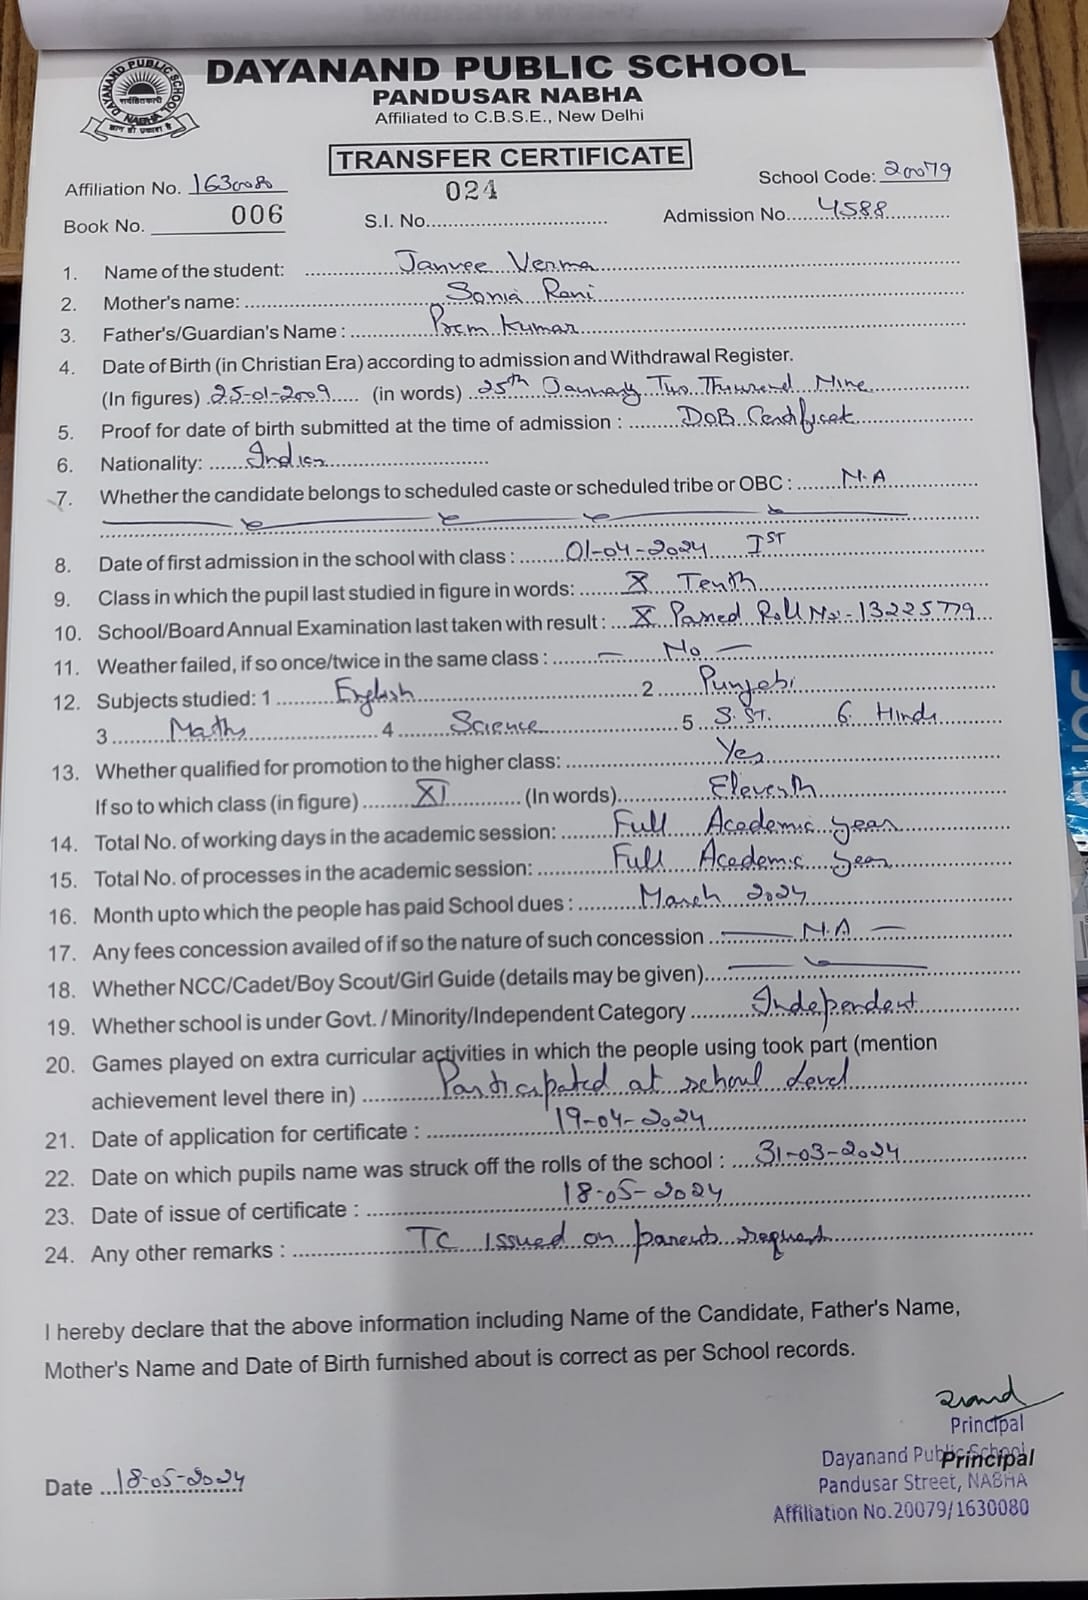 DAYANAND PUBLIC SCHOOL
DAYANAND PUBLIC SCHOOL
NABHA
PANDUSAR NABHA
Affiliated to C.B.S.E., New Delhi
TRANSFER CERTIFICATE
Affiliation No. 1630080
024
School Code: 20079
Book No. 006
S.I. No.
Admission No. 4588
1. Name of the student: Janvee Verma
2. Mother's name: Sonia Rani
3. Father's/Guardian's Name : Prem Kumar
4. Date of Birth (in Christian Era) according to admission and Withdrawal Register.
(In figures) 25-01-2009 (in words) 25th January Two Thousand Nine
5. Proof for date of birth submitted at the time of admission : DOB Certificate
6. Nationality: Indian
7. Whether the candidate belongs to scheduled caste or scheduled tribe or OBC : N.A
8. Date of first admission in the school with class : 01-04-2024 IST
9. Class in which the pupil last studied in figure in words: X Tenth
10. School/Board Annual Examination last taken with result : X Passed Roll No:- 13225779
11. Weather failed, if so once/twice in the same class : — No —
12. Subjects studied: 1 English 2 Punjabi
3 Maths 4 Science 5 S.ST. 6. Hindi
13. Whether qualified for promotion to the higher class: Yes
If so to which class (in figure) XI (In words) Eleventh
14. Total No. of working days in the academic session: Full Academic year
15. Total No. of processes in the academic session: Full Academic year
16. Month upto which the people has paid School dues : March 2024
17. Any fees concession availed of if so the nature of such concession — N.A —
18. Whether NCC/Cadet/Boy Scout/Girl Guide (details may be given)
19. Whether school is under Govt. / Minority/Independent Category Independent
20. Games played on extra curricular activities in which the people using took part (mention
achievement level there in) Participated at school level
21. Date of application for certificate : 19-04-2024
22. Date on which pupils name was struck off the rolls of the school : 31-03-2024
23. Date of issue of certificate : 18-05-2024
24. Any other remarks : TC issued on parents request
I hereby declare that the above information including Name of the Candidate, Father's Name,
Mother's Name and Date of Birth furnished about is correct as per School records.
Principal
Dayanand Public School
Principal
Pandusar Street, NABHA
Affiliation No.20079/1630080
Date 18-05-2024